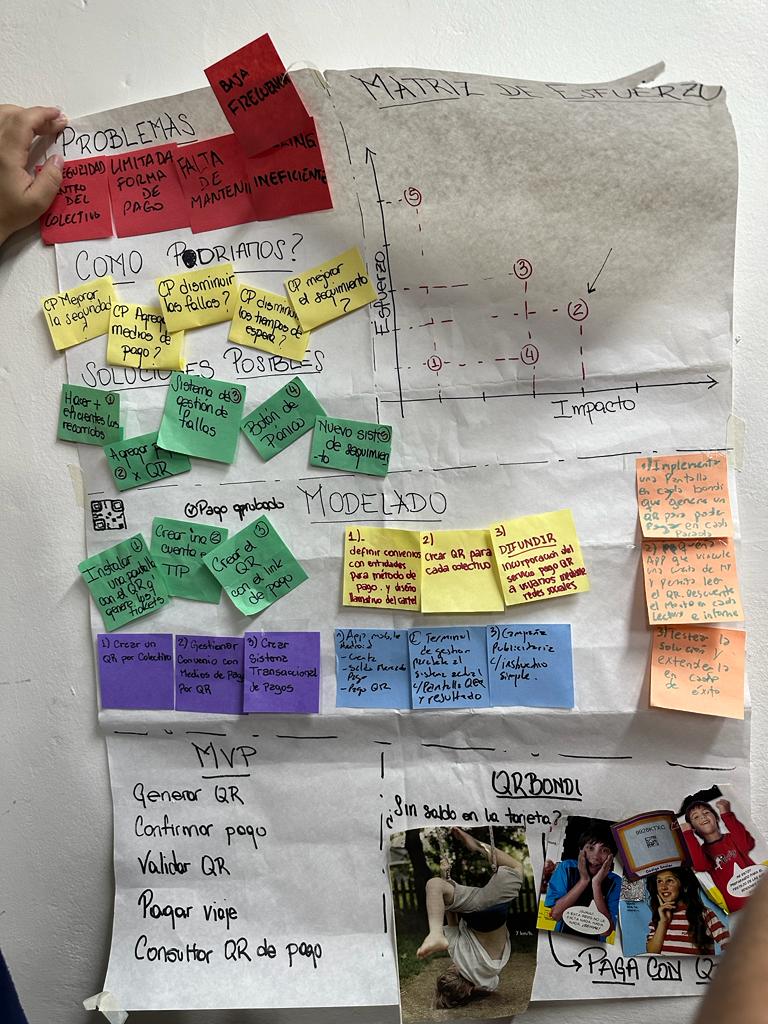 PROBLEMAS
BAJA
FRECUENC
SEGURIDAD
NTRO
DEL
COLECTIVO
LIMITADA
FORMA
DE
PAGO
FALTA
DE
MANTENI
INEFICIENTE
MATRIZ DE ESFUERZO
Esfuerzo
⑤
③
②
①
④
Impacto
COMO PODRIAMOS?
CP Mejorar
la seguridad
?
CP Agregar
medios de
pago?
CP disminuir
los fallos?
CP disminu
los tiempos de
espera?
CP mejorar
el seguimiento
?
SOLUCIONES POSIBLES
Hacer + ①
eficientes los
recorridos
Agregar
② x QR
Sistema de ③
gestión de
fallas
④
Botón de
Pánico
Nuevo siste ⑤
de seguimien
-to
Pago aprobado
MODELADO
Instalar ①
una pantalla
con el QR q
genere los
tickets
Crear una ②
cuenta
③
Crear el
QR
con el link
de pago
1)-
definir convenios
con entidades
para método de
pago. y diseño
llamativo del cartel
2)
Crear QR para
cada colectivo
3)
DIFUNDIR
incorporación del
servicio pago QR
a usuarios mediante
redes sociales
1) Implementar
una Pantalla
en cada bondi
que genere un
QR para poder
Pagar en cada
Parada
2)
App que vincule
una cuenta de MP
y permita leer
el QR. Descuente
el Monto en cada
lectura e informe
3) Testear la
solución y
extenderla
en caso
de éxito
1) Crear un
QR por Colectivo
2) Gestionar
Convenio con
Medios de Pago
Por QR
3) Crear
Sistema
Transaccional
de Pagos
- Cuenta
- Saldo Mercado
Pago
- Pago QR
② Terminal
de gestion
sistema actual
c/Pantalla QR
y resultado
3) Campaña
Publicitaria
c/instructivo
simple.
MVP
Generar QR
Confirmar pago
Validar QR
Pagar viaje
Consultar QR de pago
QRBONDI
¿Sin saldo en la tarjeta?
7 km/h
PAGA CON Q